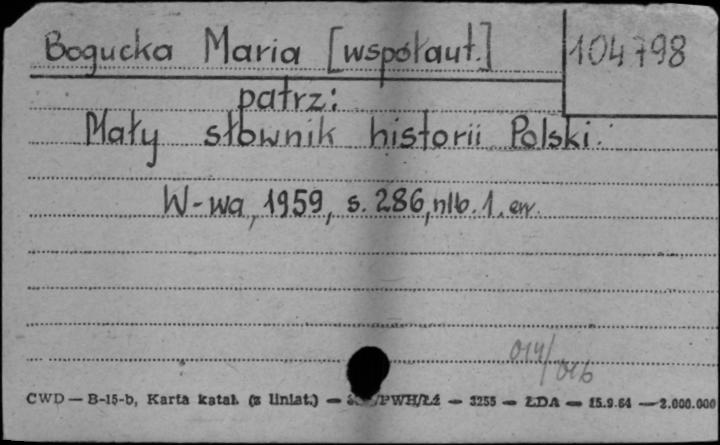 Bogucka Maria [współaut.] 104798
patrz:
Mały słownik historii Polski.
W-wa, 1959, s. 286, nlb. 1. err.
014/016
CWD — B-15-b, Karta katal. (z liniat.) — /PWH/Łź — 3255 — ŁDA — 15.9.64 — 2.000.000